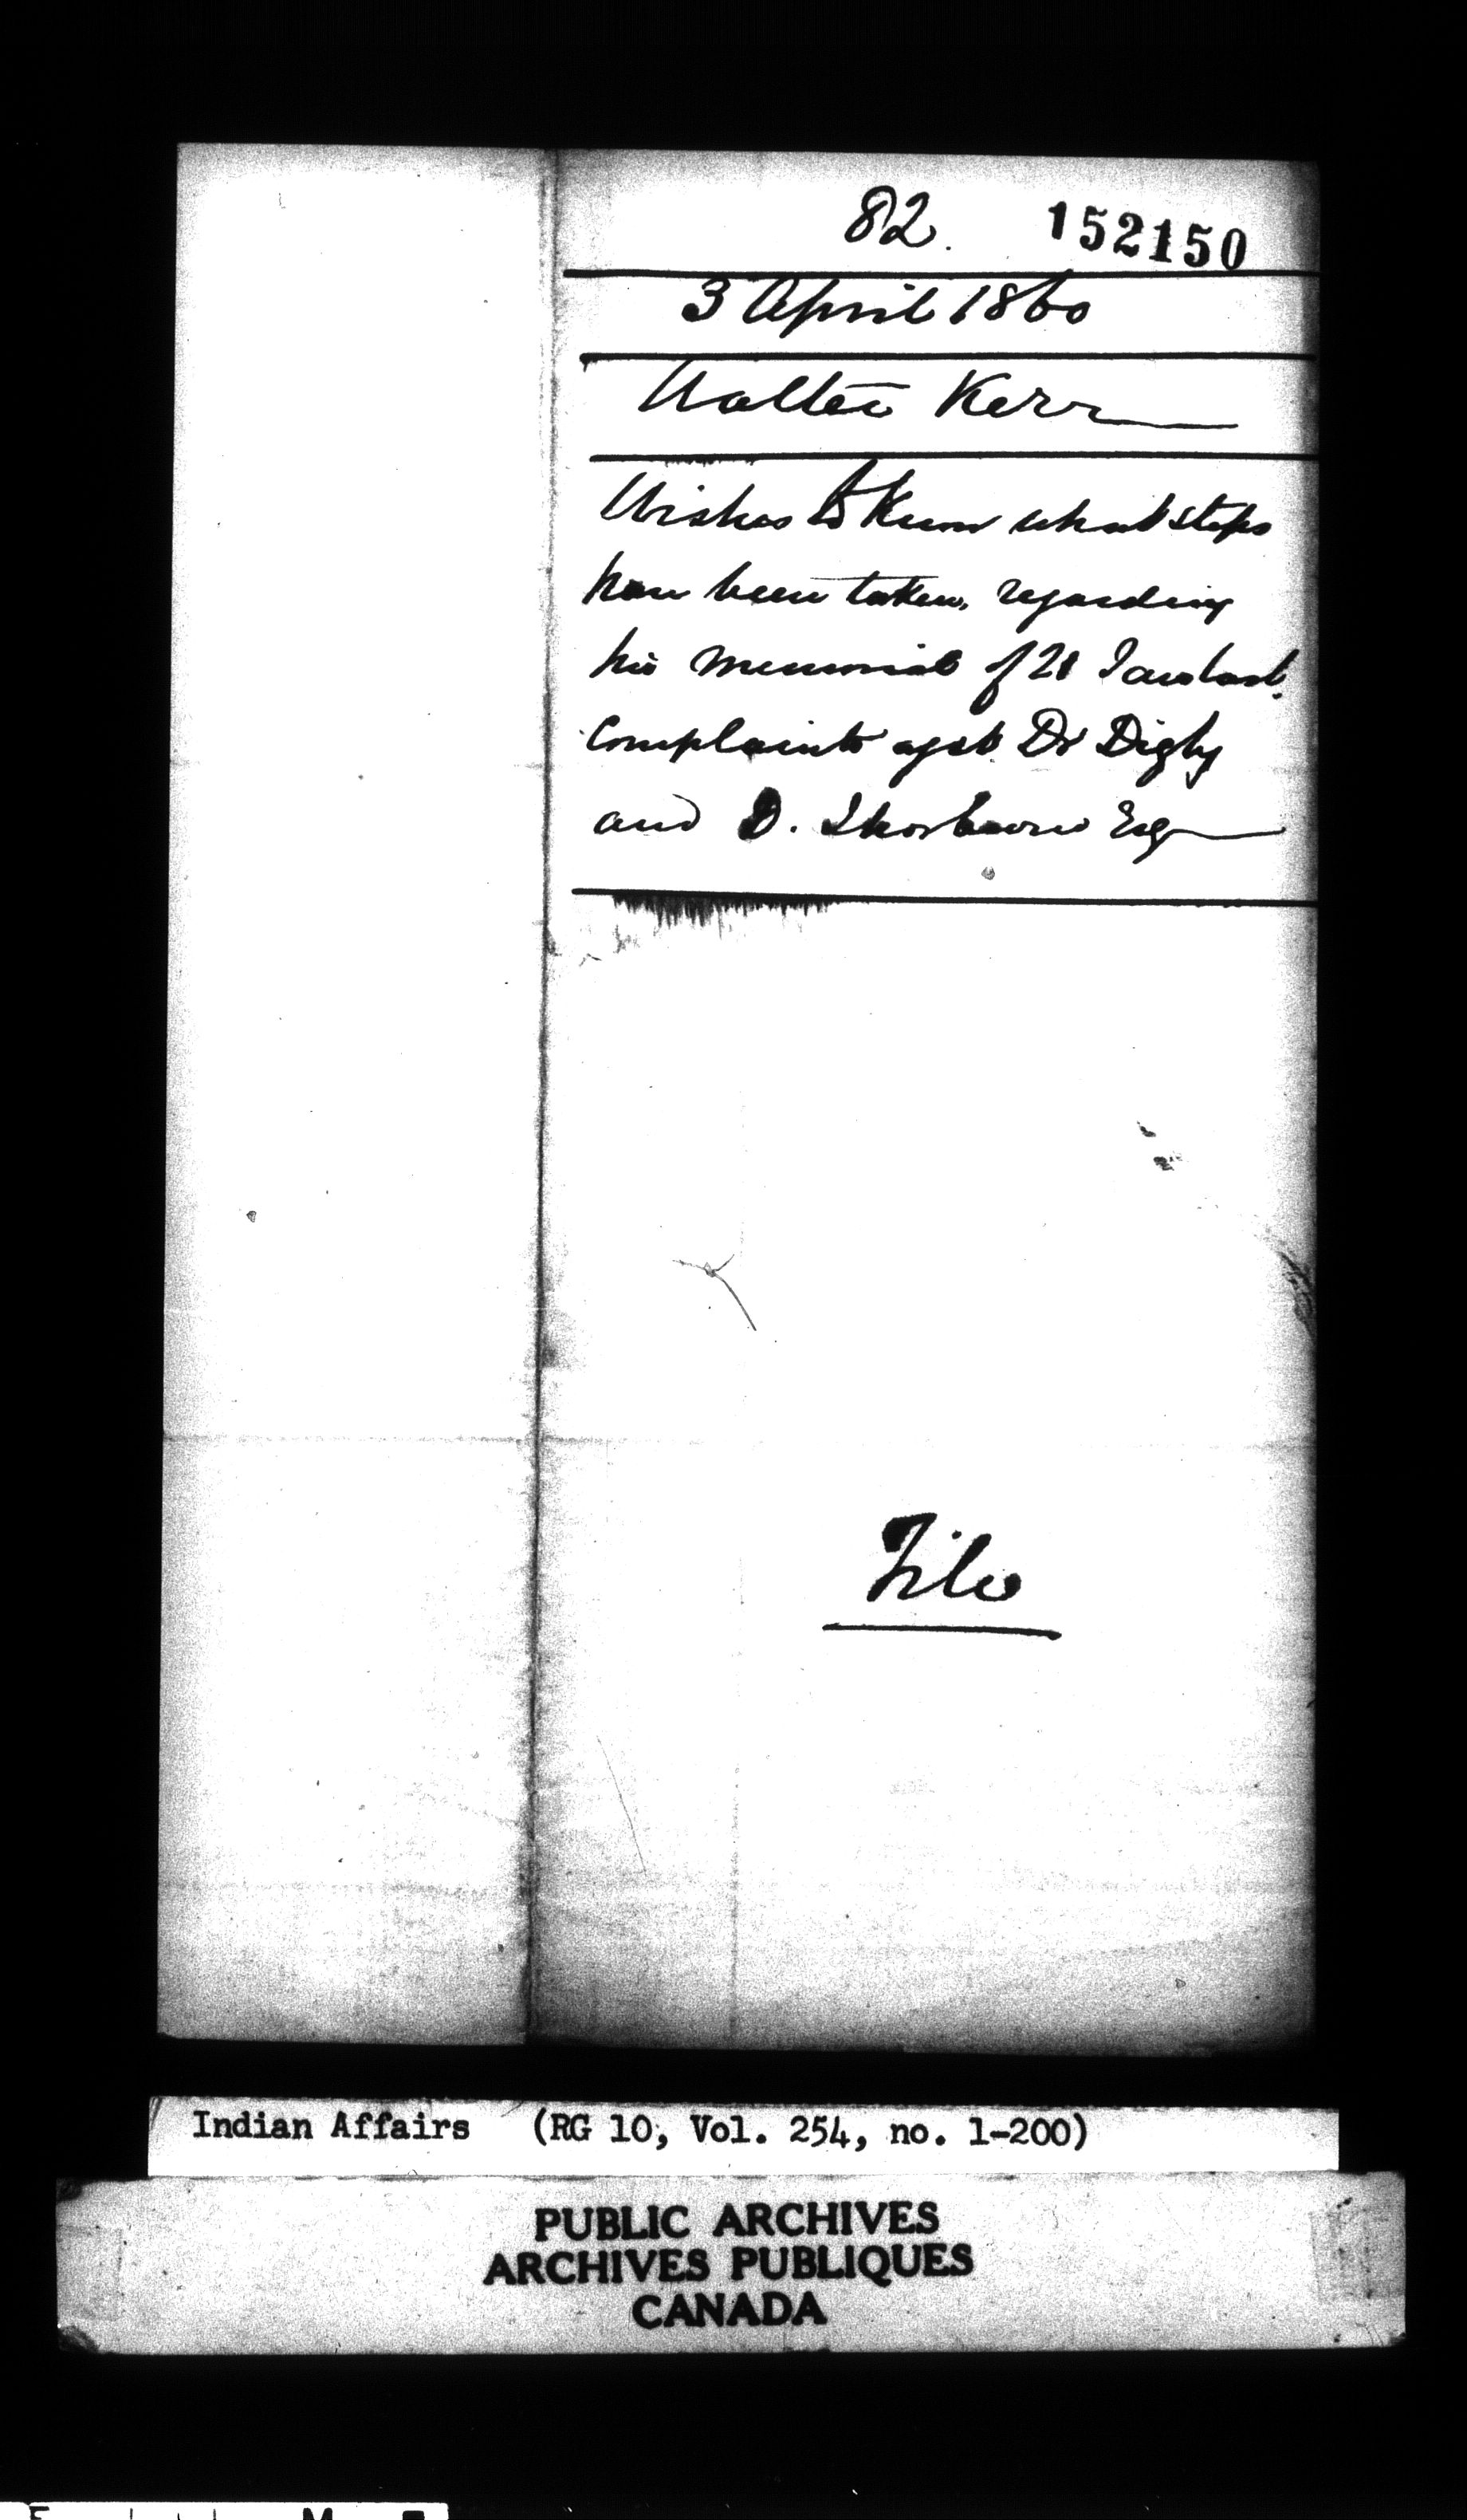 82. 152150
3 April 1860
Walter Kerr
Wishes to Know what steps
have been taken, regarding
his memorial of 21 Jan last.
Complaints agst Dr Digby
and D. Thorburn Esq
File
Indian Affairs (RG 10, Vol. 254, no. 1-200)
PUBLIC ARCHIVES
ARCHIVES PUBLIQUES
CANADA